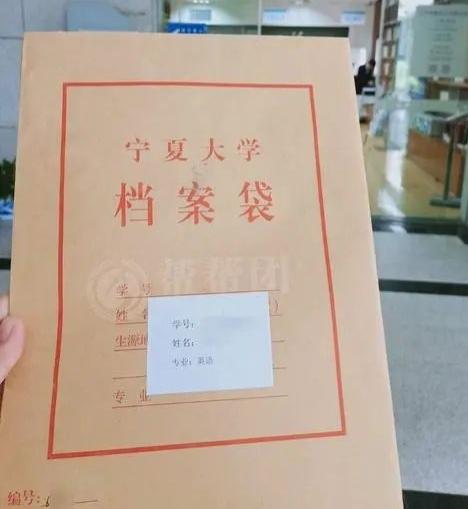 宁夏大学
档案袋
帮帮团
学号
姓名
学号:
姓名:
专业: 英语
生源地
专业
编号: 6